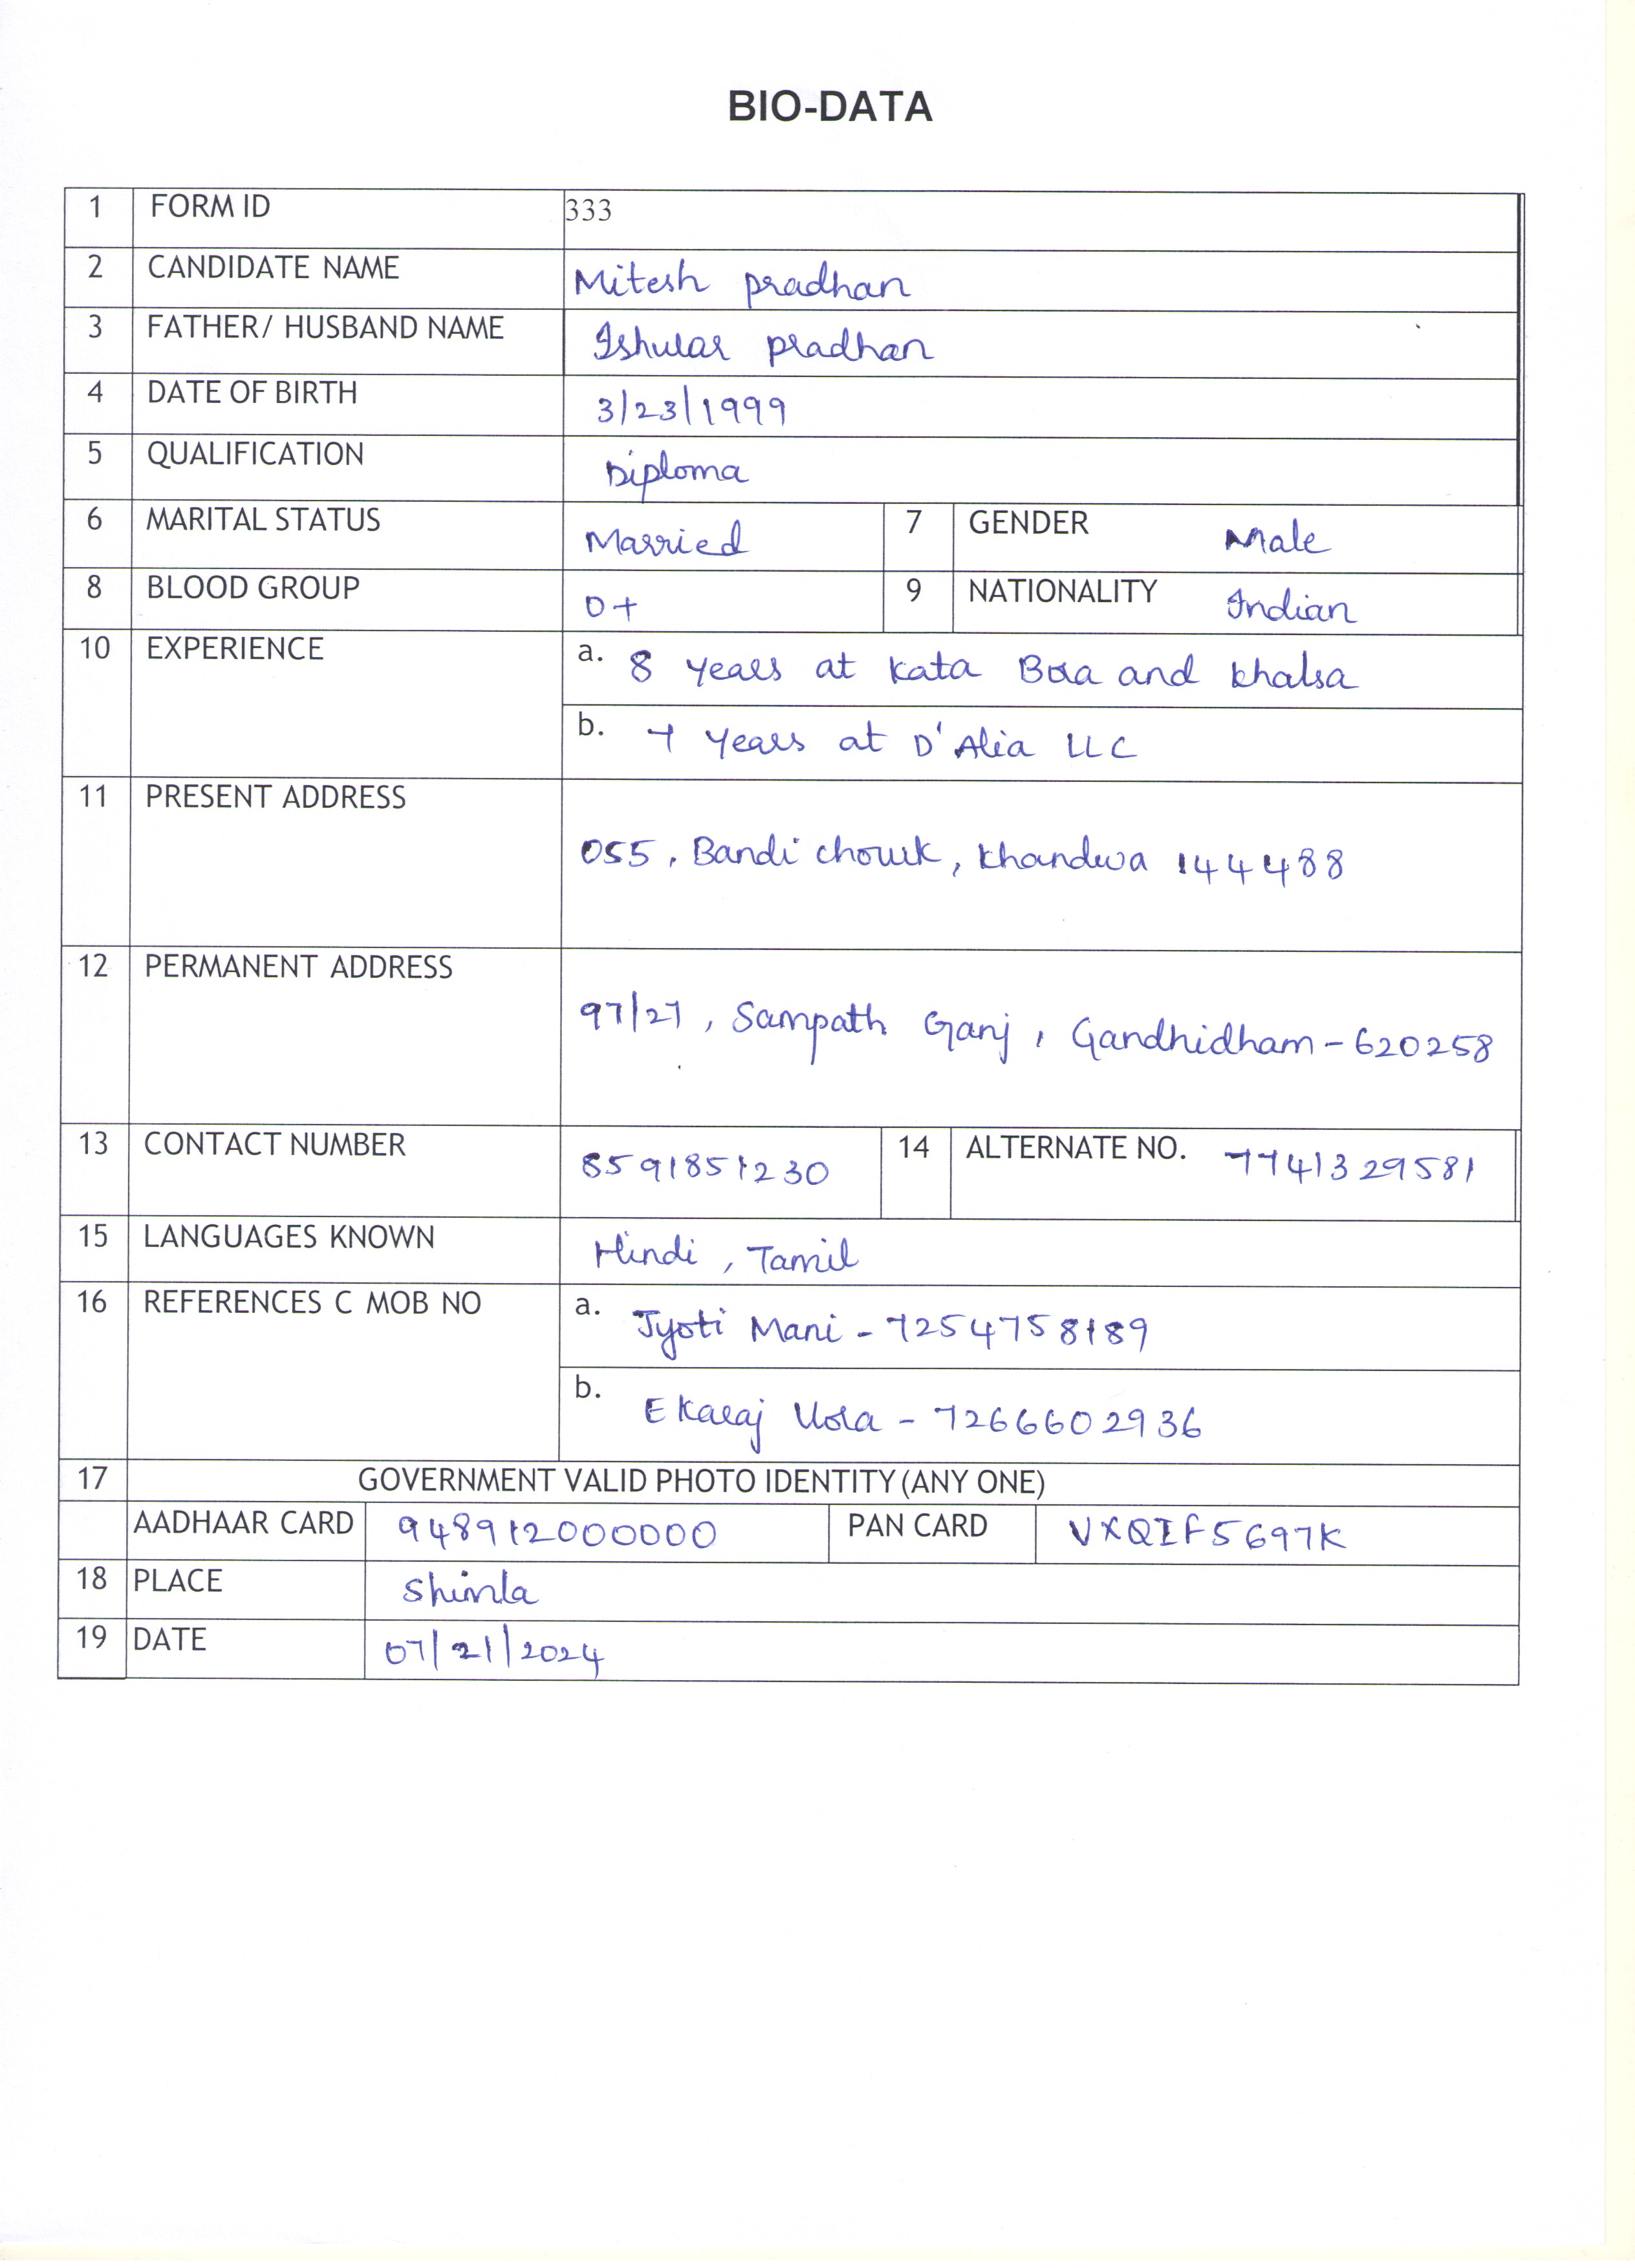 BIO-DATA
1 FORM ID 333
2 CANDIDATE NAME Mitesh pradhan
3 FATHER/ HUSBAND NAME Ishwar pradhan
4 DATE OF BIRTH 3/23/1999
5 QUALIFICATION Diploma
6 MARITAL STATUS Married 7 GENDER Male
8 BLOOD GROUP O+ 9 NATIONALITY Indian
10 EXPERIENCE a. 8 years at Kata Bora and Khalsa
b. 7 years at D'Alia LLC
11 PRESENT ADDRESS
055, Bandi chowk, Khandwa 144488
12 PERMANENT ADDRESS
97/27, Sampath Ganj, Gandhidham - 620258
13 CONTACT NUMBER 8591851230 14 ALTERNATE NO. 7741329581
15 LANGUAGES KNOWN Hindi, Tamil
16 REFERENCES C MOB NO a. Jyoti Mani - 7254758189
b. Ekaraj Vora - 7266602936
17 GOVERNMENT VALID PHOTO IDENTITY (ANY ONE)
AADHAAR CARD 948912000000 PAN CARD VXQIF5697K
18 PLACE Shimla
19 DATE 07/21/2024